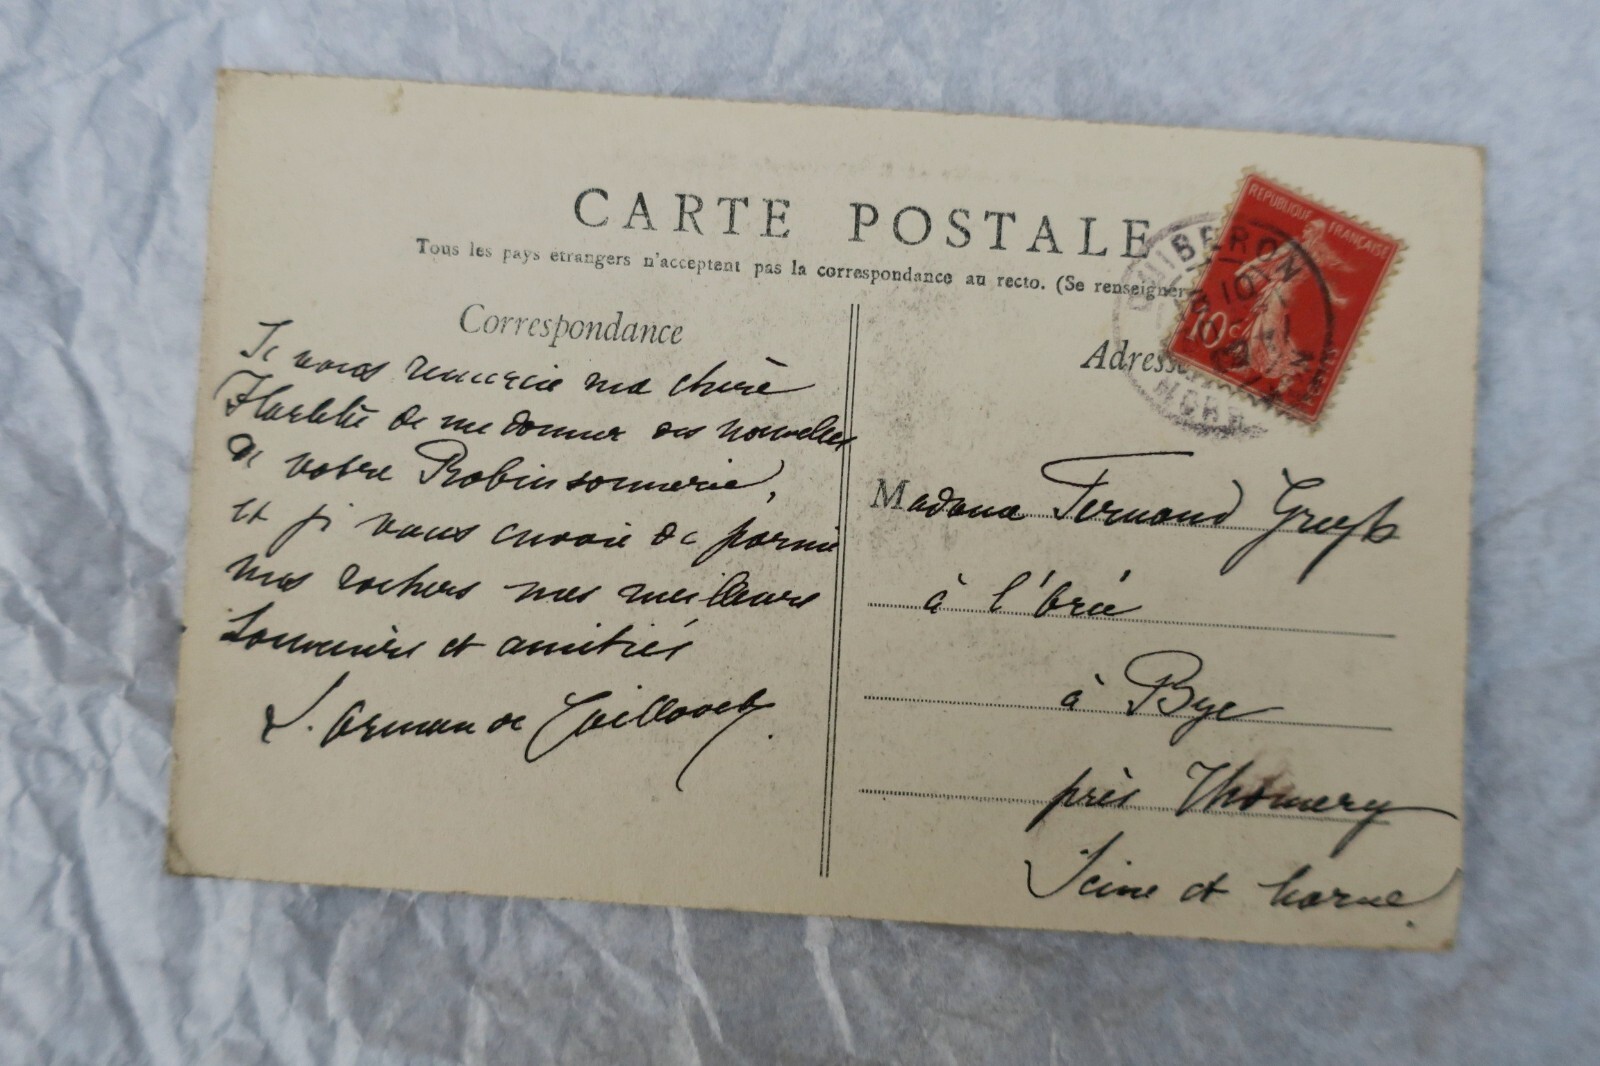 CARTE POSTALE
Tous les pays étrangers n'acceptent pas la correspondance au recto. (Se renseigner
Correspondance
Je vous remercie ma chère
de me donner des nouvelles
de votre Robinsonnerie,
et je vous envoie de parmi
mes rochers mes meilleurs
souvenirs et amitiés
L. Arman de Caillavet
REPUBLIQUE FRANÇAISE
10c
QUIBERON
MORB
Adresse
Madame Fernand Gregh
à l'orée
à Bye
près Thomery
Seine et Marne.